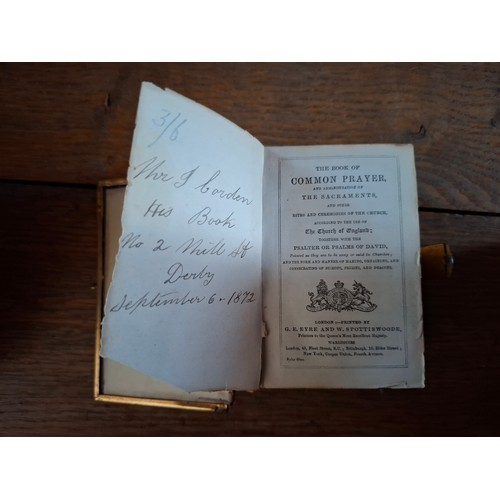 3/6
Mr J Cordon
His Book
No 2 Mill St
Derby
September 6 - 1872
THE BOOK OF
COMMON PRAYER,
AND ADMINISTRATION OF
THE SACRAMENTS,
AND OTHER
RITES AND CEREMONIES OF THE CHURCH,
ACCORDING TO THE USE OF
The Church of England;
TOGETHER WITH THE
PSALTER OR PSALMS OF DAVID,
Pointed as they are to be sung or said in Churches;
AND THE FORM AND MANNER OF MAKING, ORDAINING, AND
CONSECRATING OF BISHOPS, PRIESTS, AND DEACONS.
LONDON:—PRINTED BY
G. E. EYRE AND W. SPOTTISWOODE,
Printers to the Queen's Most Excellent Majesty.
WAREHOUSES
London, 43, Fleet Street, E.C.; Edinburgh, 23, Elder Street;
New York, Cooper Union, Fourth Avenue.